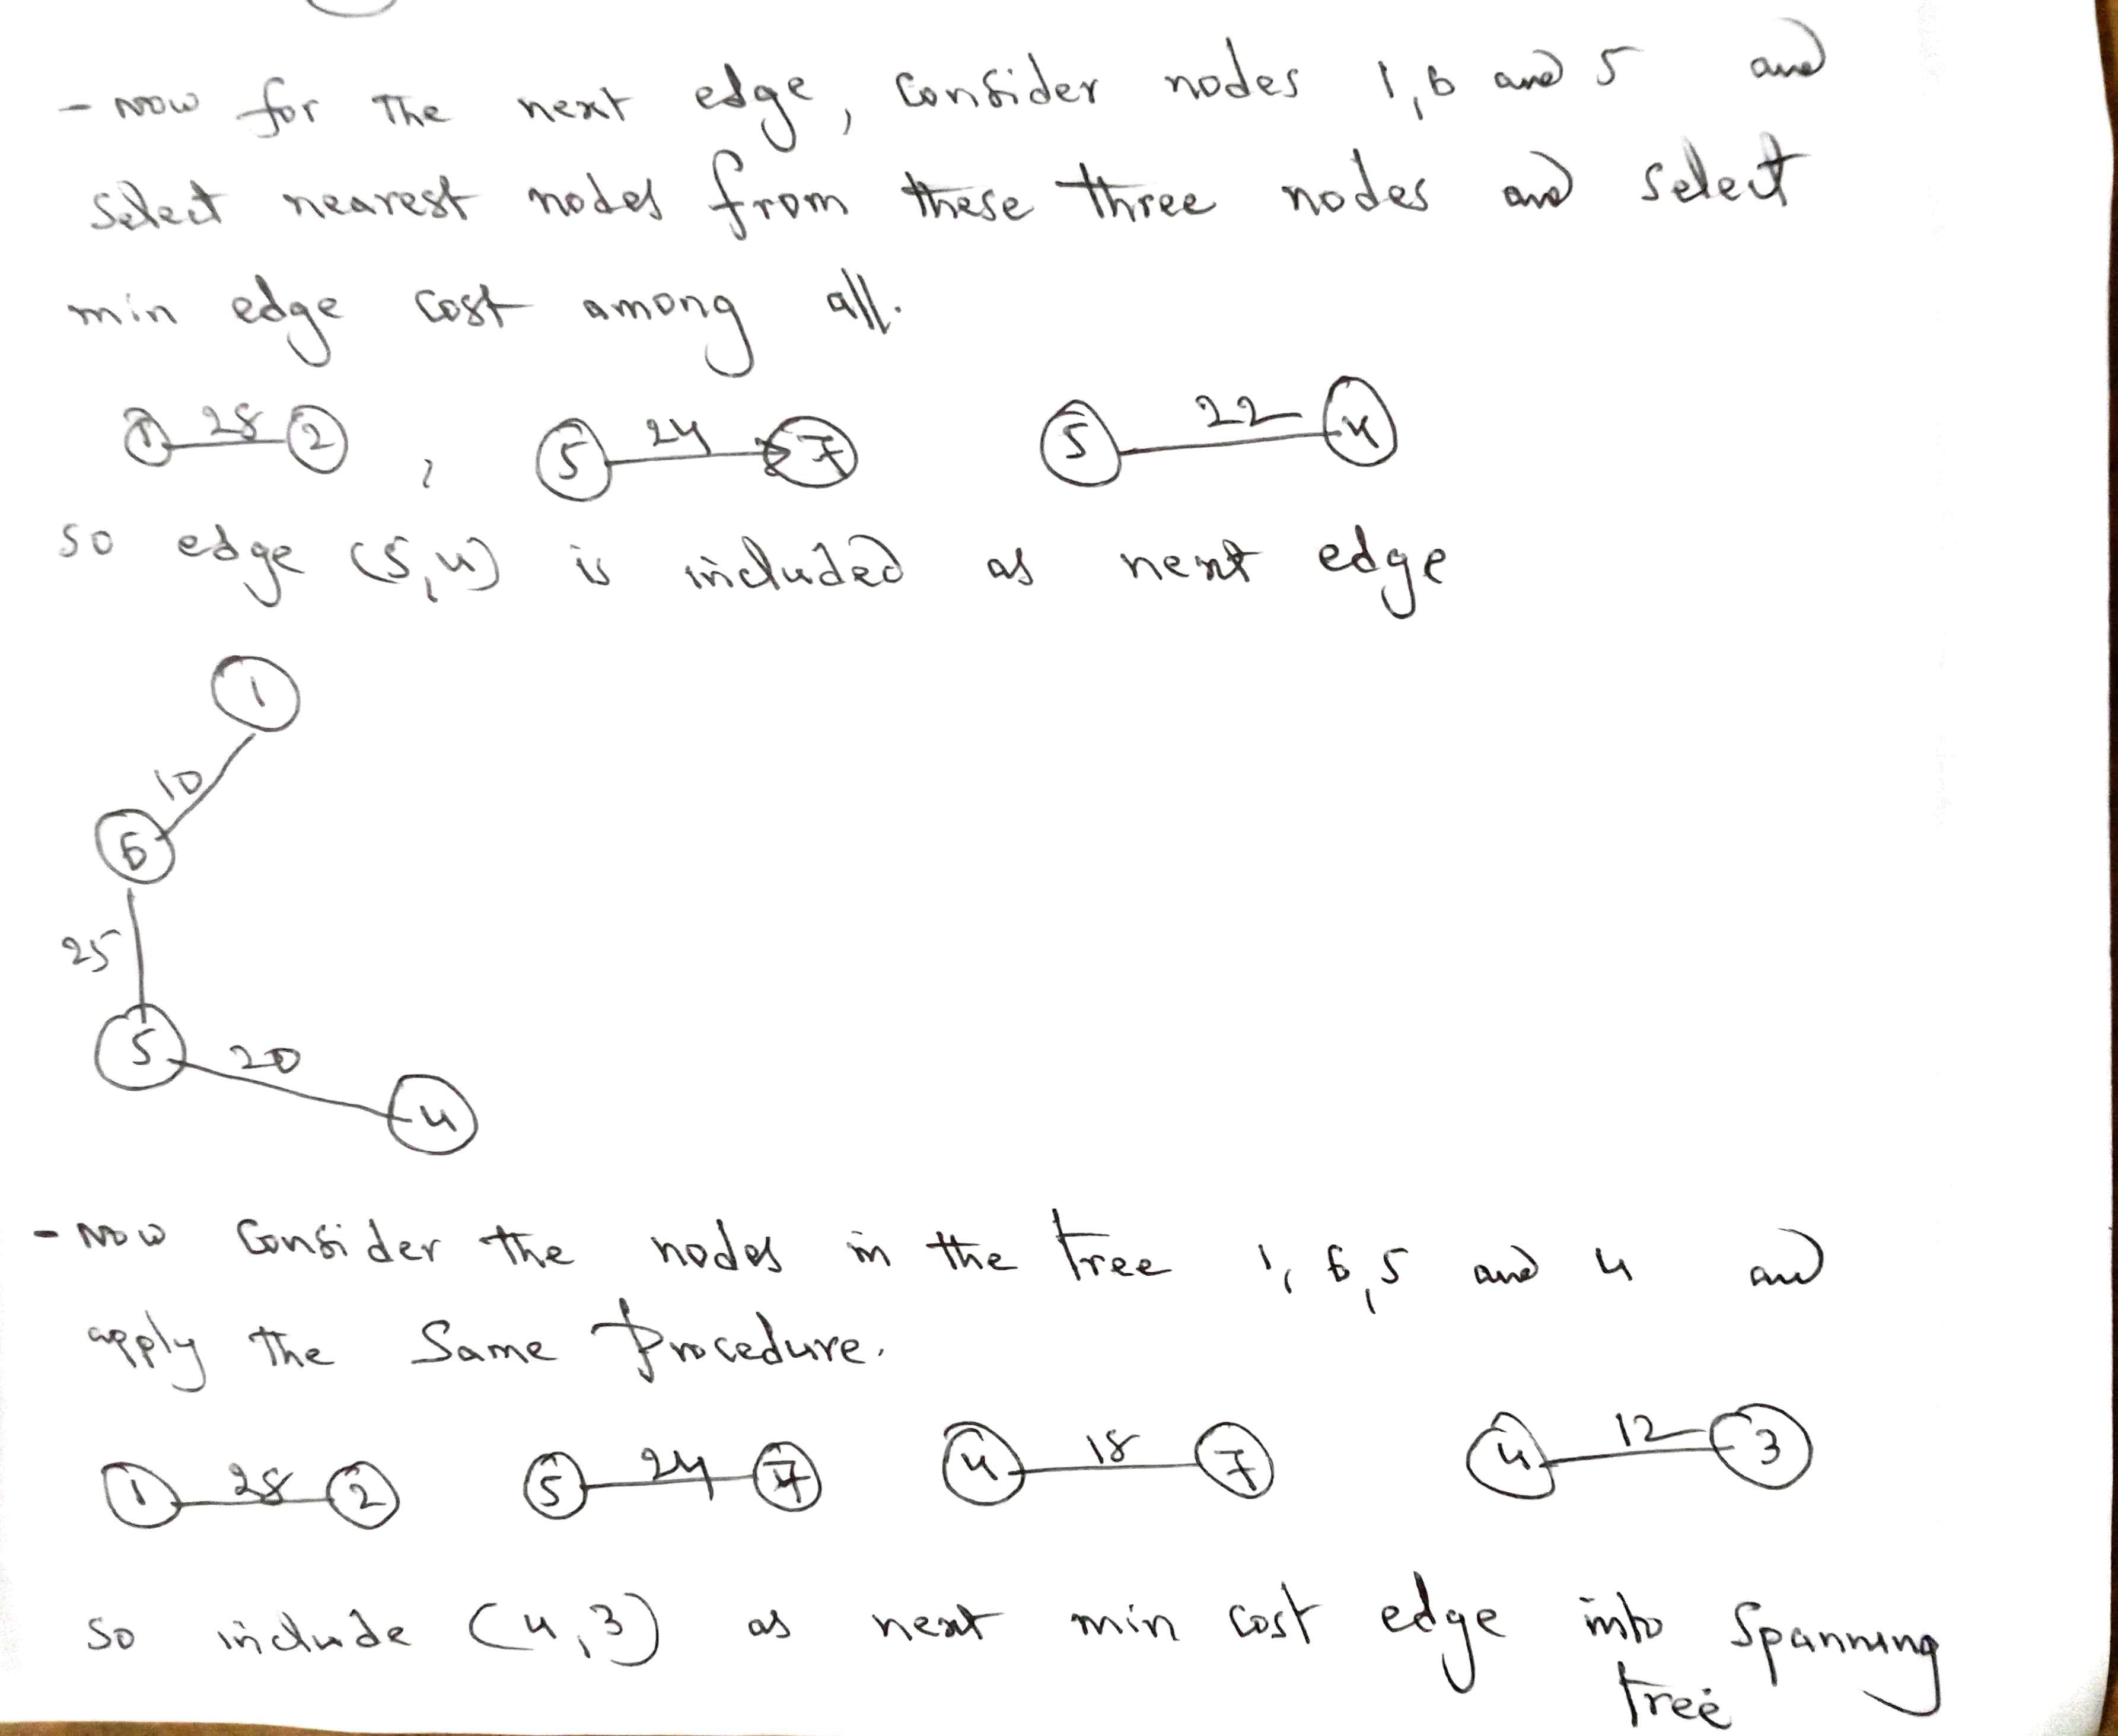 - Now for the next edge, consider nodes 1,6 and 5 and
select nearest nodes from these three nodes and select
min edge cost among all.
1 28 2 , 5 24 7 5 22 4
so edge (5,4) is included as next edge
1
10
6
25
5 20
4
- Now consider the nodes in the tree 1, 6,5 and 4 and
apply the same procedure.
1 28 2 5 24 7 4 18 7 4 12 3
so include (4,3) as next min cost edge into spanning
tree